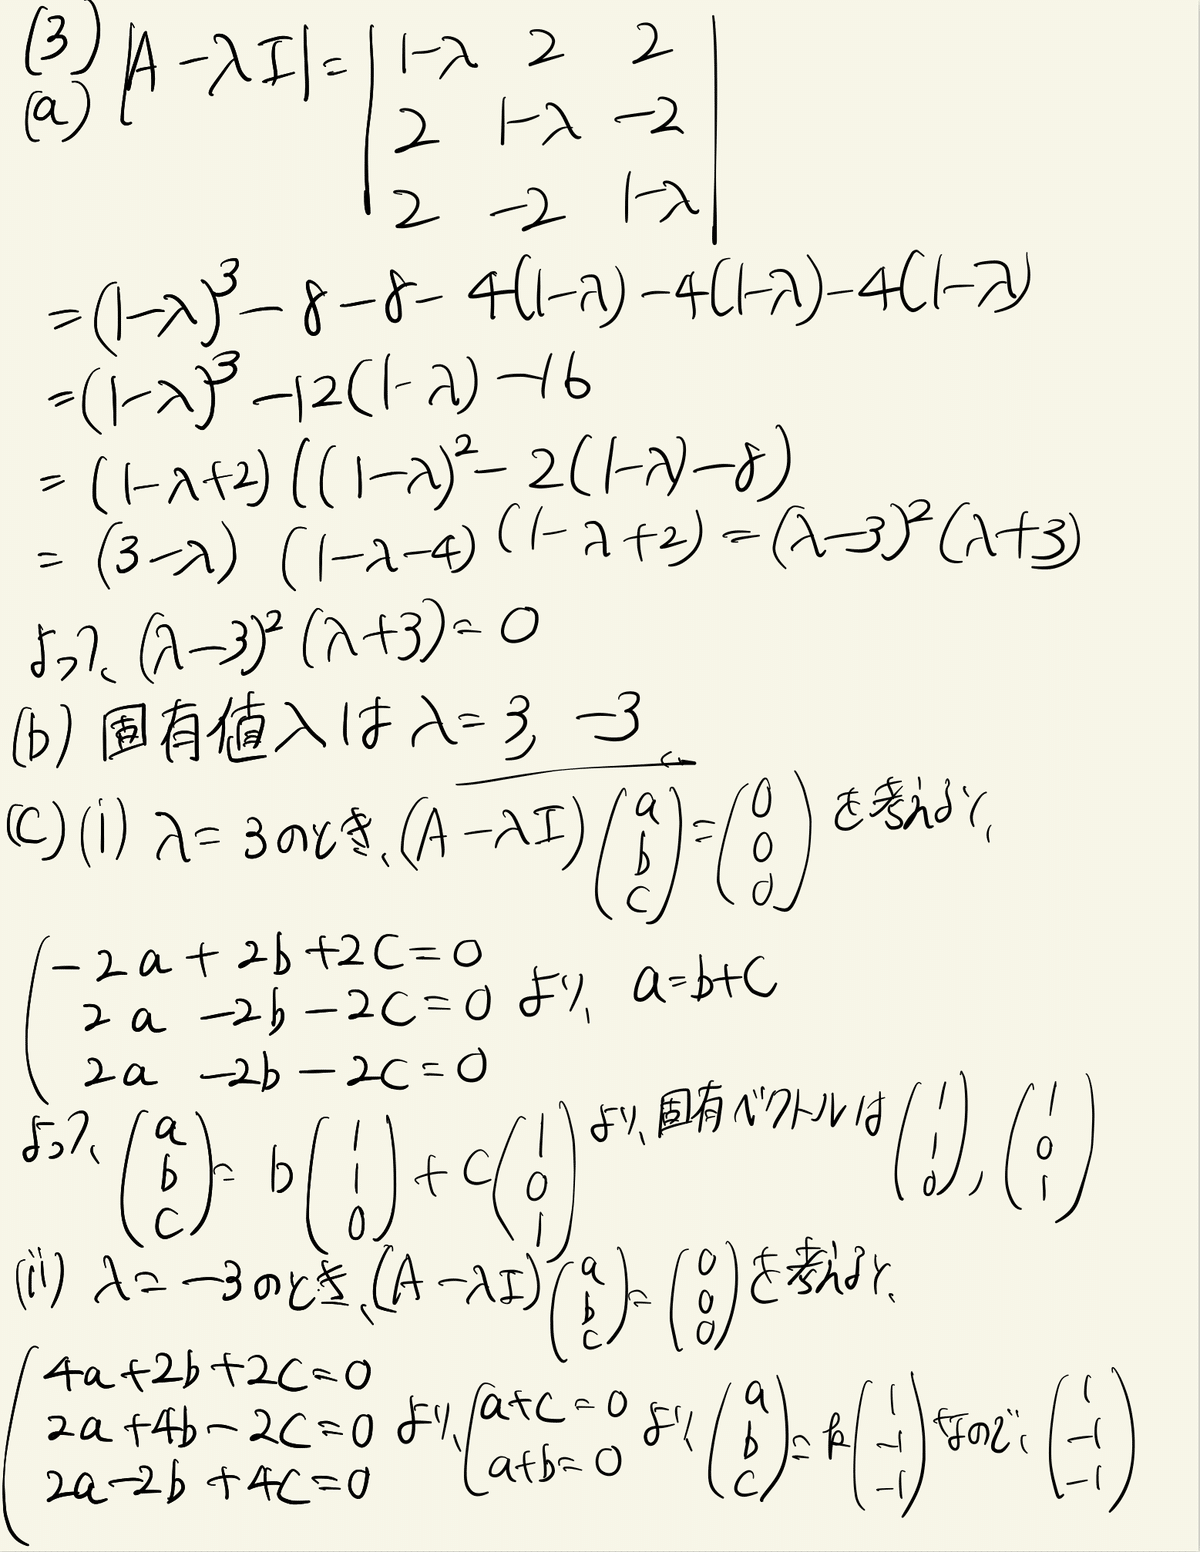 (3)
(a) |A-λI| = | 1-λ 2 2 |
| 2 1-λ -2 |
| 2 -2 1-λ |
=(1-λ)³-8-8-4(1-λ)-4(1-λ)-4(1-λ)
=(1-λ)³-12(1-λ)-16
=(1-λ+2)((1-λ)²-2(1-λ)-8)
=(3-λ)(1-λ-4)(1-λ+2)=(λ-3)²(λ+3)
よって、(λ-3)²(λ+3)=0
(b) 固有値λはλ=3, -3
(C)(i) λ=3のとき、(A-λI)(a b c)=(0 0 0)を考えると、
-2a+2b+2C=0
2a-2b-2C=0 より、a=b+C
2a-2b-2C=0
よって、(a b c)=b(1 1 0)+C(1 0 1)より、固有ベクトルは(1 1 0),(1 0 1)
(ii) λ=-3のとき、(A-λI)(a b c)=(0 0 0)を考えると、
4a+2b+2C=0
2a+4b-2C=0 より、a+C=0 a+b=0 より(a b c)=k(1 -1 -1)なので、(1 -1 -1)
2a-2b+4C=0